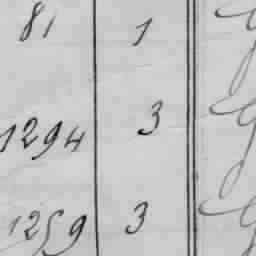 81 1
1294 3
1259 3